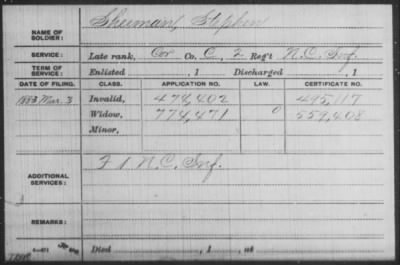 NAME OF SOLDIER: Shuman, Stephen
SERVICE: Late rank, Cor Co. C, 2 Reg't N.C. Inf.
TERM OF SERVICE: Enlisted , 1 Discharged , 1
DATE OF FILING. CLASS. APPLICATION NO. LAW. CERTIFICATE NO.
1883 Mar. 3 Invalid, 474,402 495,117
Widow, 774,471 0 559,408
Minor,
ADDITIONAL SERVICES: F 1 N.C. Inf.
REMARKS:
Died , 1 , at